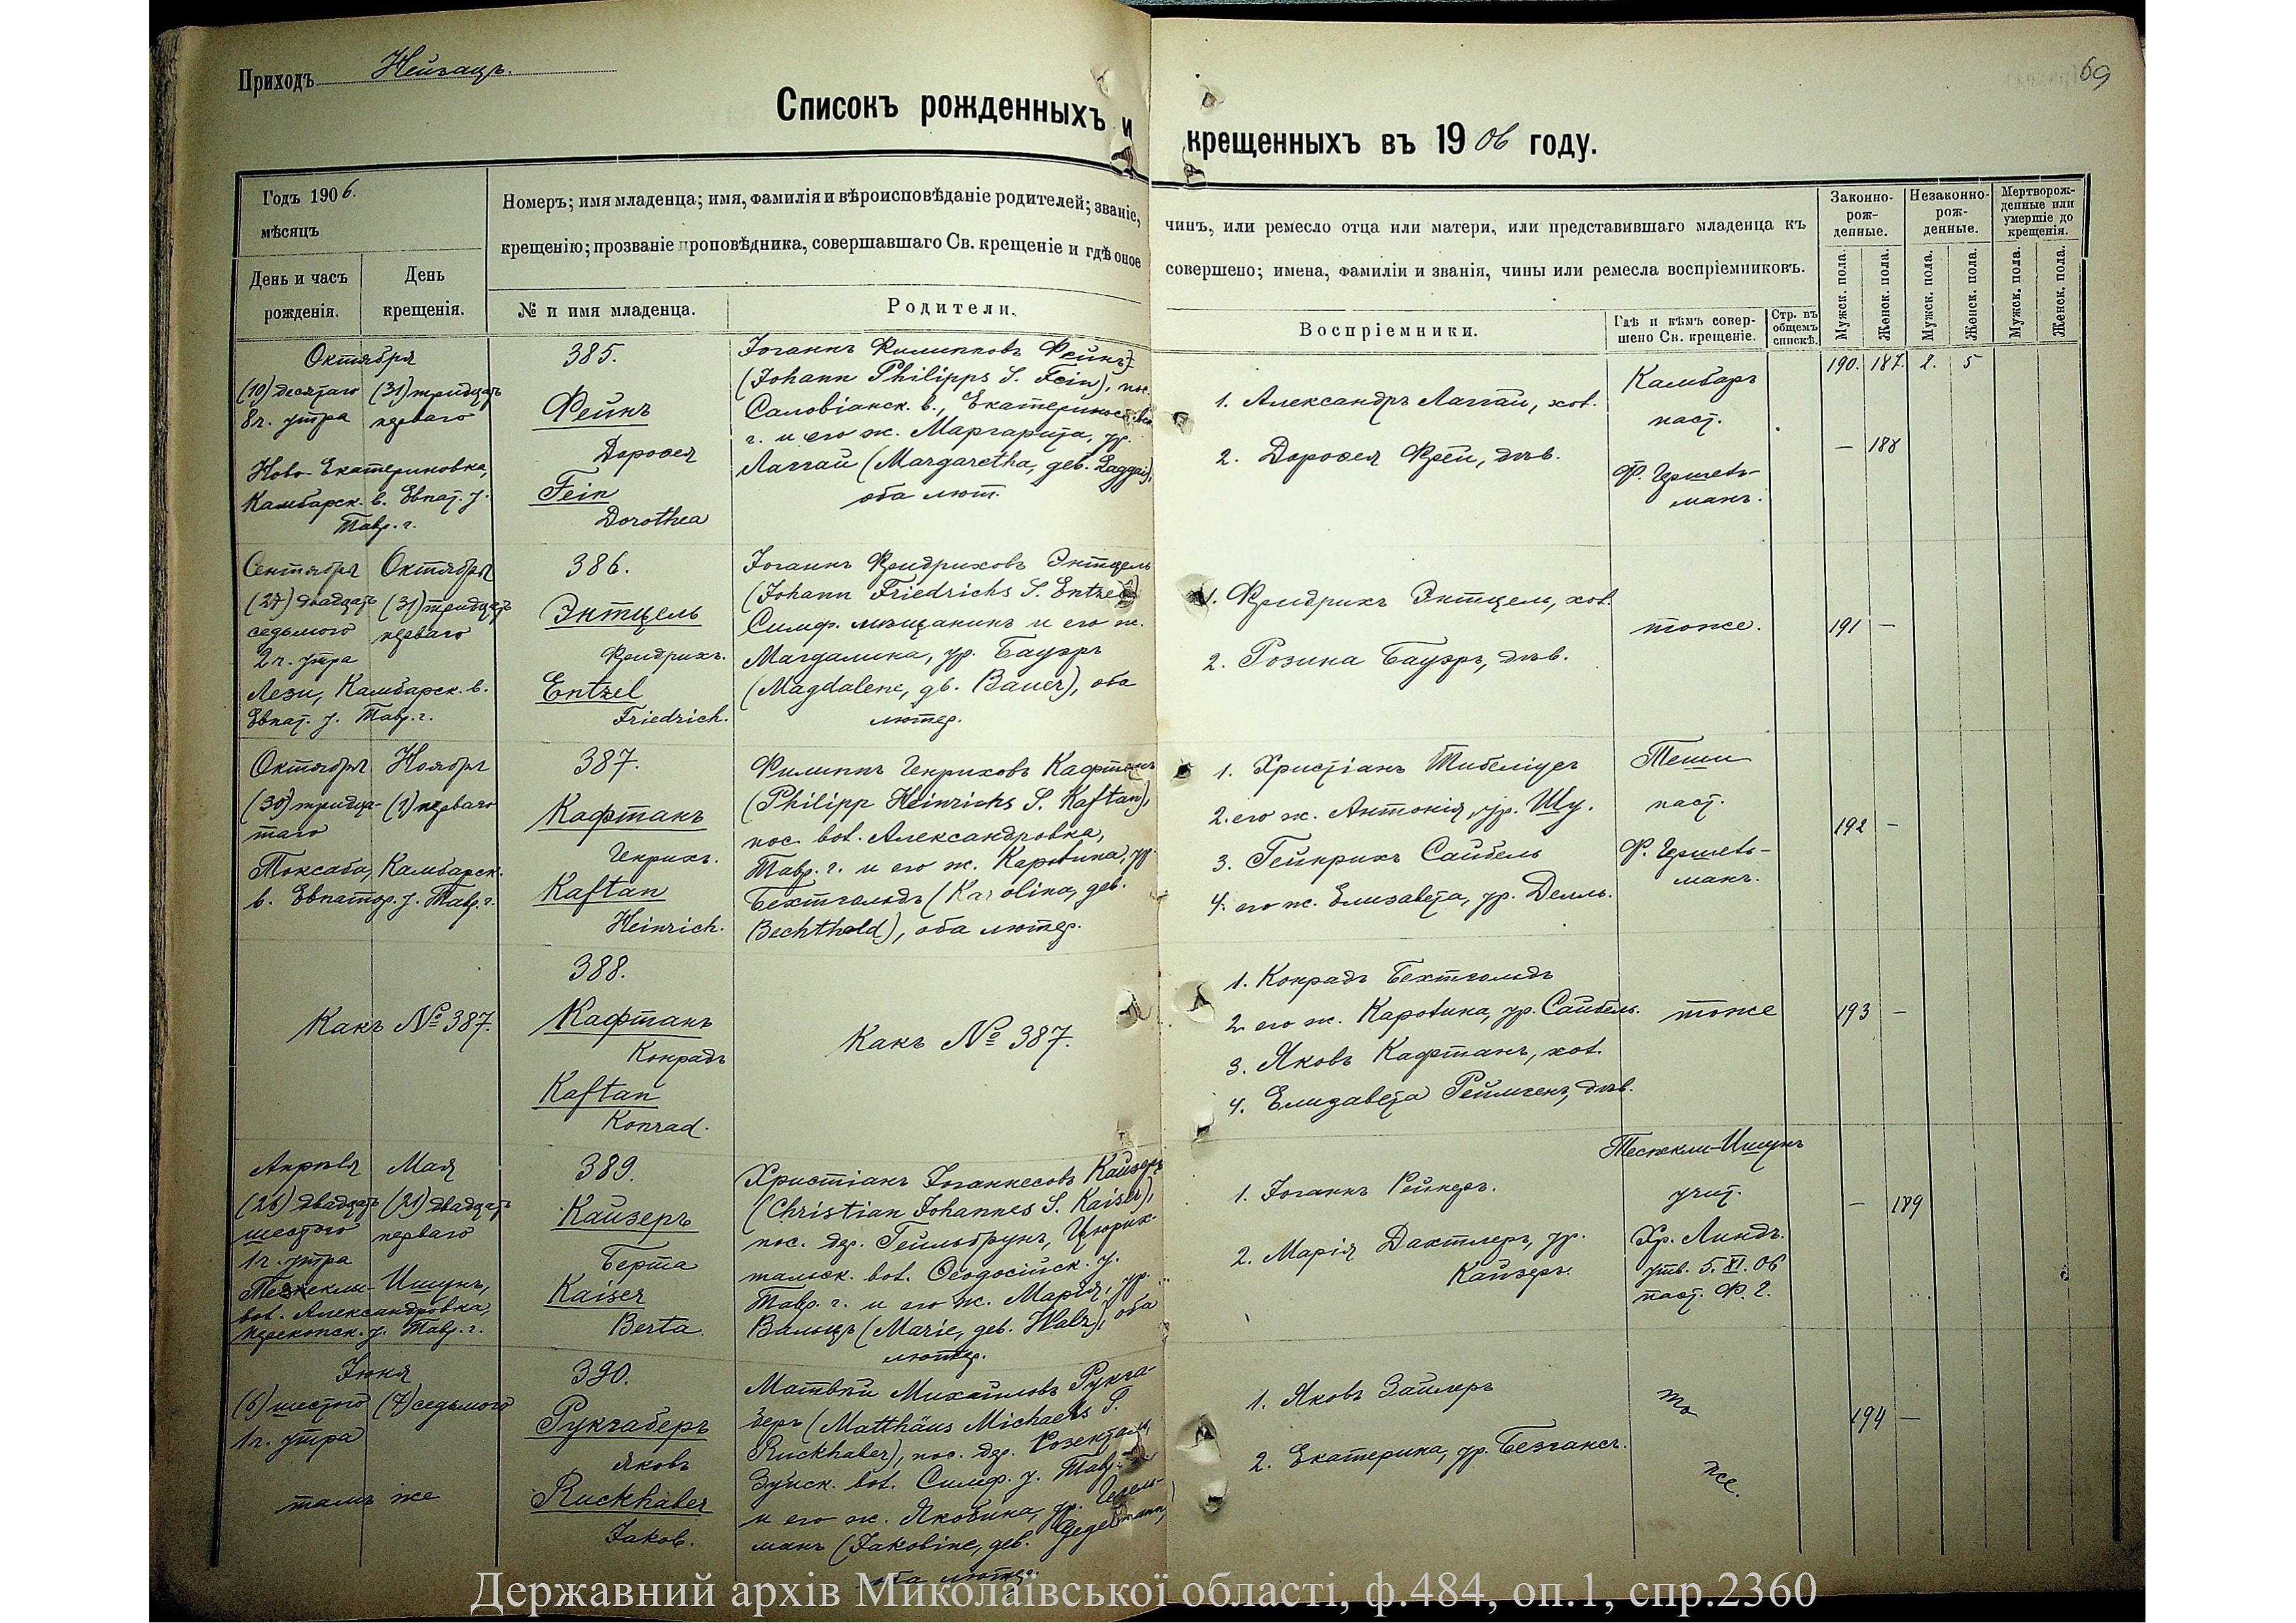 Приходъ Нейзацъ.
69
Списокъ рожденныхъ и крещенныхъ въ 1906 году.
Годъ 1906.
мѣсяцъ
День и часъ рожденія.
День крещенія.
Номеръ; имя младенца; имя, фамилія и вѣроисповѣданіе родителей; званіе, чинъ, или ремесло отца или матери, или представившаго младенца къ
крещенію; прозваніе проповѣдника, совершавшаго Св. крещеніе и гдѣ оное совершено; имена, фамиліи и званія, чины или ремесла воспріемниковъ.
№ и имя младенца.
Родители.
Воспріемники.
Гдѣ и кѣмъ совер-
шено Св. крещеніе.
Стр. въ
общемъ
спискѣ.
Законно-
рож-
денные.
Незаконно-
рож-
денные.
Мертворож-
денные или
умершіе до
крещенія.
Мужск. пола.
Женск. пола.
Мужск. пола.
Женск. пола.
Мужск. пола.
Женск. пола.
190. 187. 2. 5
Октября
(10) десятаго
8 ч. утра
(31) тридцать
перваго
Ново-Екатериновка,
Камбарск. в. Евпат. у.
Тавр. г.
385.
Фейнъ
Доровея
Fein
Dorothea
Іоганнъ Филипповъ Фейнъ
(Johann Philipps S. Fein), пос.
г. и его ж. Маргарита, ур.
Лаггай (Margaretha, geb. Laggai),
оба лют.
1. Александръ Лаггай, хол.
2. Доровея Фрей, дѣв.
Камбаръ
паст.
— 188
Октября
Сентября
(27) двадцать
седьмого
2 ч. утра
(31) тридцать
перваго
Лези, Камбарск. в.
Евпат. у. Тавр. г.
386.
Энтцель
Фридрихъ.
Entzel
Friedrich.
Іоганнъ Фридриховъ Энтцель
(Johann Friedrichs S. Entzel)
Симф. мѣщанинъ и его ж.
Магдалина, ур. Бауэръ
(Magdalene, gb. Bauer), оба
лютер.
1. Фридрихъ Энтцель, хол.
2. Розина Бауэръ, дѣв.
тоже.
191 —
Октября
(30) тридца-
таго
Ноября
(1) перваго
Токсаба, Камбарск.
в. Евпатор. у. Тавр. г.
387.
Кафтанъ
Генрихъ.
Kaftan
Heinrich.
Филиппъ Генриховъ Кафтанъ
(Philipp Heinrichs S. Kaftan),
пос. вол. Александровка,
Тавр. г. и его ж. Каролина, ур.
Бехтгольдъ (Karolina, geb.
Bechthold), оба лютер.
1. Христіанъ
2. его ж. Антонія, ур.
3. Гейнрихъ Сайбель
4. его ж. Елизавета, ур. Делль.
Теши
паст.
192 —
Какъ № 387.
388.
Кафтанъ
Конрадъ
Kaftan
Konrad.
Какъ № 387.
1. Конрадъ Бехтгольдъ
2. его ж. Каролина, ур. Сайбель.
3. Яковъ Кафтанъ, хол.
4. Елизавета дѣв.
тоже
193 —
Апрѣля
(26) двадцать
шестого
1 ч. утра
Мая
(21) двадцать
перваго
вол. Александровка,
Перекопск. у. Тавр. г.
389.
Кайзеръ
Берта
Kaiser
Berta.
Христіанъ Іоганнесовъ Кайзеръ
(Christian Johannes S. Kaiser),
пос. дер. Гейльбрунъ, Цюрих-
тальск. вол. Ѳеодосійск. у.
Тавр. г. и его ж. Марія, ур.
Вальцъ (Marie, geb. Walz), оба
лютер.
1. Іоганнъ Рейнеръ.
2. Марія Дахтлеръ, ур.
Кайзеръ.
учит.
Хр. Линдъ.
утв. 5. XI. 06
паст. Ф. Г.
— 189
Іюня
(6) шестого
1 ч. утра
(7) седьмого
тамъ же
390.
Рукгаберъ
Яковъ
Ruckhaber
Jakob.
Матвѣй Михайловъ Рукга-
беръ (Matthäus Michaels S.
Ruckhaber), пос. дер. Розенталь,
Зуйск. вол. Симф. у. Тавр. г.
и его ж. Якобина, ур. Гегель-
манъ (Jakobine, geb. Gegelmann,
оба лютер.
1. Яковъ Зайлеръ
2. Екатерина, ур.
то
же.
194 —
Державний архів Миколаївської області, ф.484, оп.1, спр.2360